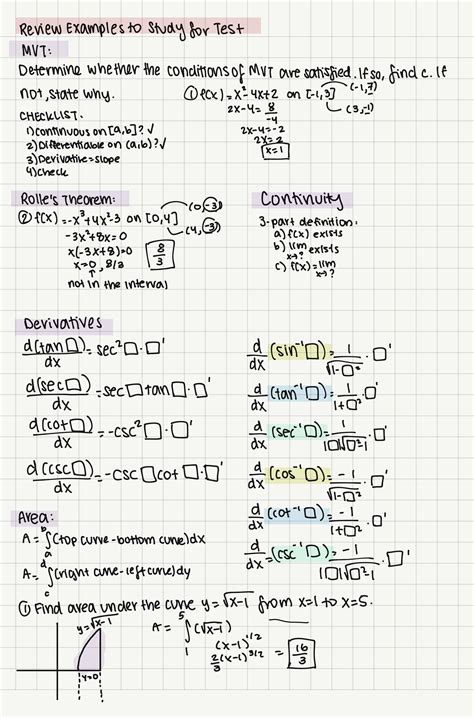 Review Examples to Study for Test
MVT:
Determine whether the conditions of MVT are satisfied. If so, find c. If
not, state why.
① f(x) = x² - 4x + 2 on [-1, 3]
(-1, 7)
(3, -1)
2x - 4 = 8/-4
2x - 4 = -2
2x = 2
x = 1
CHECKLIST:
1) continuous on [a,b]? √
2) Differentiable on (a,b)? √
3) Derivative = slope
4) check
Rolle's Theorem:
② f(x) = -x³ + 4x² - 3 on [0, 4]
(0, -3)
(4, -3)
-3x² + 8x = 0
x(-3x + 8) = 0
x = 0, 8/3
8/3
↑
not in the interval
Continuity
3-part definition:
a) f(x) exists
b) lim x→? exists
c) f(x) = lim x→?
Derivatives
d(tan□)/dx = sec²□·□'
d(sec□)/dx = sec□tan□·□'
d(cot□)/dx = -csc²□·□'
d(csc□)/dx = -csc□cot□·□'
d/dx (sin⁻¹□) = 1/√1-□² · □'
d/dx (tan⁻¹□) = 1/1+□² · □'
d/dx (sec⁻¹□) = 1/|□|√□²-1 · □'
d/dx (cos⁻¹□) = -1/√1-□² · □'
d/dx (cot⁻¹□) = -1/1+□² · □'
d/dx = (csc⁻¹□) = -1/|□|√□²-1 · □'
Area:
A = ∫ₐᵇ (top curve - bottom curve) dx
A = ∫c^d (right curve - left curve) dy
① Find area under the curve y = √x-1 from x=1 to x=5.
y = √x-1
y=0
A = ∫₁⁵ (√x-1)
(x-1)^1/2
2/3 (x-1)^3/2 = 16/3